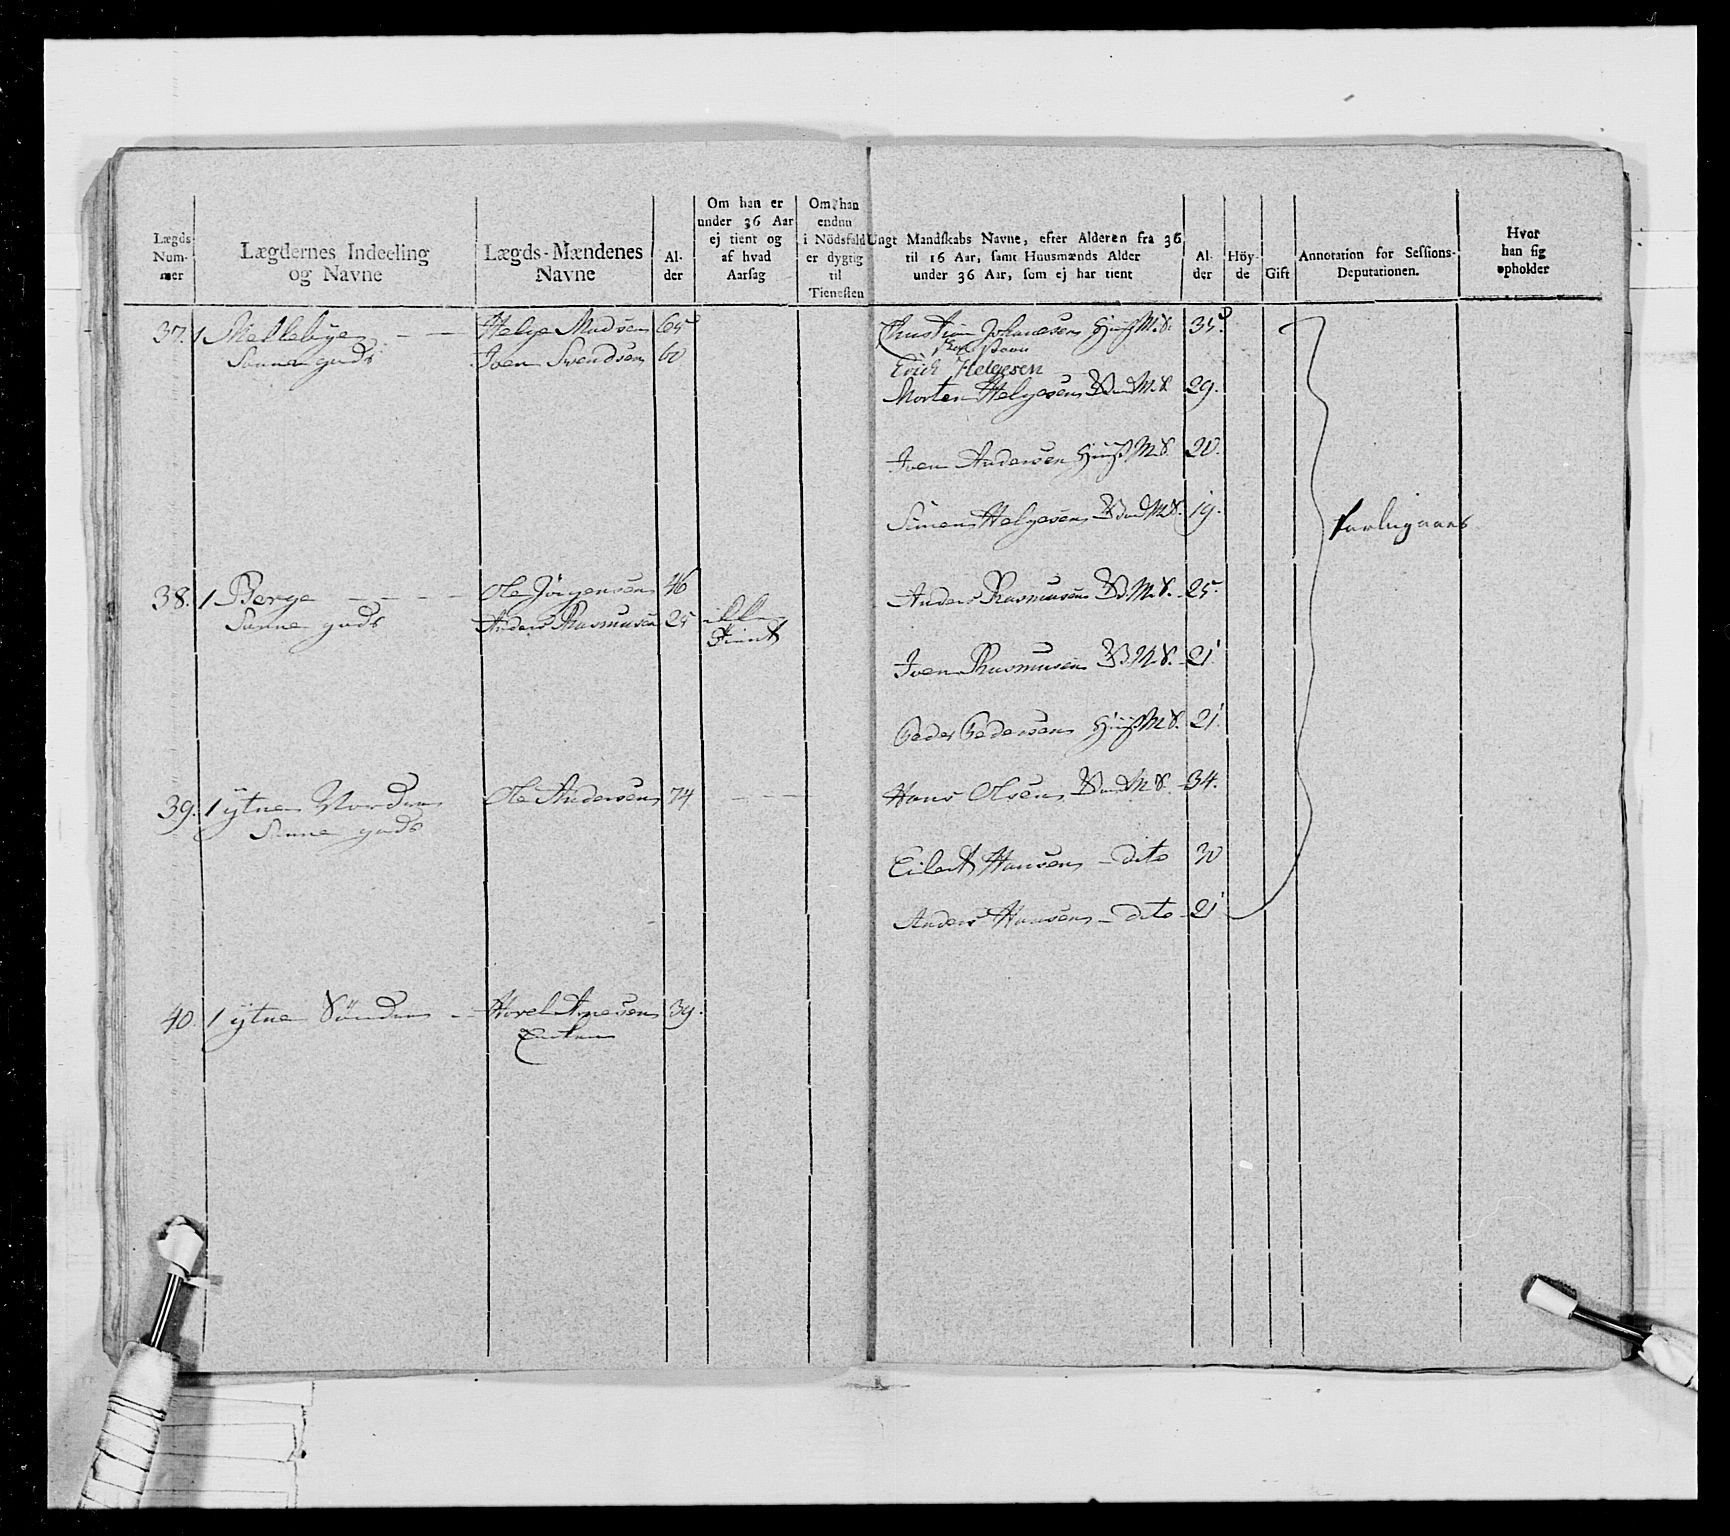 Lægds-Num-mer
Lægdernes Indeeling og Navne
Lægds-Mændenes Navne
Al-der
Om han er under 36 Aar ej tient og af hvad Aarsag
Om han endnu i Nödsfald er dygtig til Tienesten
Ungt Mandskabs Navne, efter Alderen fra 36 til 16 Aar, samt Huusmænds Alder under 36 Aar, som ej har tient
Al-der
Höy-de
Gift
Annotation for Sessions-Deputationen.
Hvor han sig opholder
37. 1 Mellebye - - Helge Madsen 65
Sanne gods Iven Svendsen 60
Christian Johanesen Huus M. S. 35.
Erich Helgesen
Morten Helgesen Bond M. S. 29.
Iven Andersen Huus M. S. 20.
Simen Helgesen Bond M. S. 19.
38. 1 Berge - - - - Ole Jörgensen 46
Sanne gods Anders Rasmusen 25 ikke tient
Anders Rasmusen B. M. S. 25.
Iven Rasmusen B. M. S. 21
Peder Pedersen Huus M. S. 21
39. 1 ytne Nordre Ole Andersen 74 - -
Sanne gods
Hans Olsen Bond M. S. 34.
Eilert Hansen - dito 30
Anders Hansen - dito 21
40. 1 ytne Söndre - - Arnesen 39.